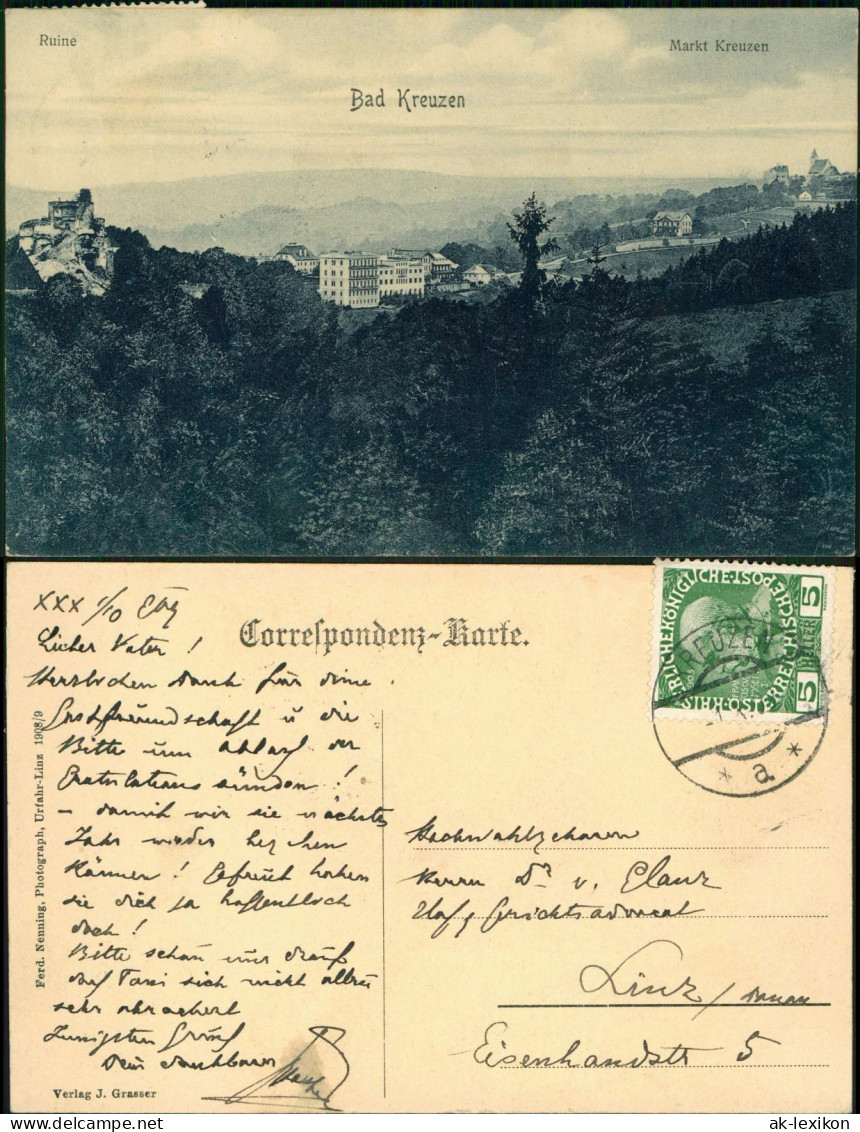 Ruine
Markt Kreuzen
Bad Kreuzen
Correspondenz-Karte.
KAISERLICHE KÖNIGLICHE ÖSTERREICHISCHE POST
5 HELLER 5
KREUZEN
* a *
XXX 1/10
Lieber Vater !
Herzlichen Dank für deine
Gastfreundschaft u die
Bitte um Ablass der
Gratulations sünden !
– damit wir sie nächstes
Jahr wieder
können ! Gefreut haben
sie dich ja hoffentlich
doch !
Bitte schau nur drauf
daß sich nicht allzu
sehr
Innigsten Gruß
Dein dankbarer
Ferd. Nenning, Photograph, Urfahr-Linz 1908/9
Verlag J. Grasser
Hochwohlgeboren
Herrn Dr. v.
Hof & Gerichtsadvocat
Linz / Donau
Eisenhandstr 5
delcampe.net
ak-lexikon